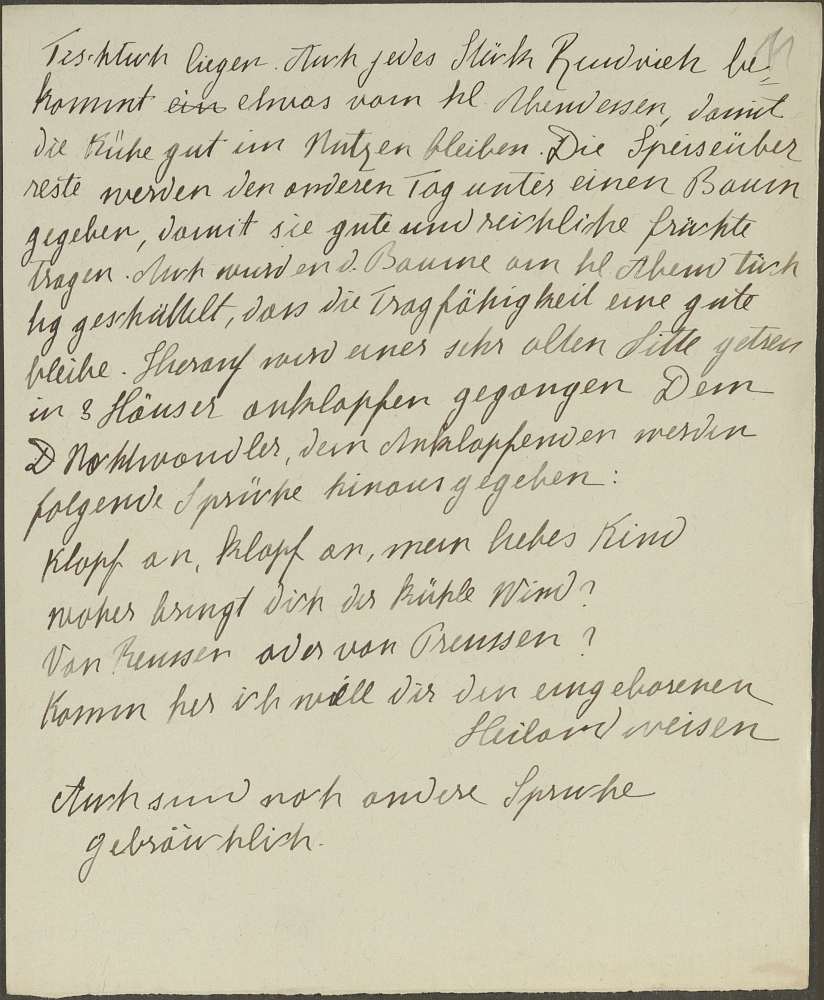 Tischtuch liegen. Auch jedes Stück Rindvieh be-
kommt ein etwas vom hl. Abendessen, damit
die Kühe gut im Nutzen bleiben. Die Speiseüber
reste werden den anderen Tag unter einen Baum
gegeben, damit sie gute und reichliche früchte
tragen. Auch wurden d. Bäume am hl Abend tüch
tig geschüttelt, dass die Tragfähigkeit eine gute
bleibe. Hierauf wird einer sehr alten Sitte getreu
in 3 Häuser anklopfen gegangen Dem
D Nachtwandler, dem Anklopfenden werden
folgende Sprüche hinausgegeben:
Klopf an, klopf an, mein liebes Kind
woher bringt dich der kühle Wind?
Von Reussen oder von Preussen?
Komm her ich will dir den eingeborenen
Heiland weisen
Auch sind noch andere Sprüche
gebräuchlich.